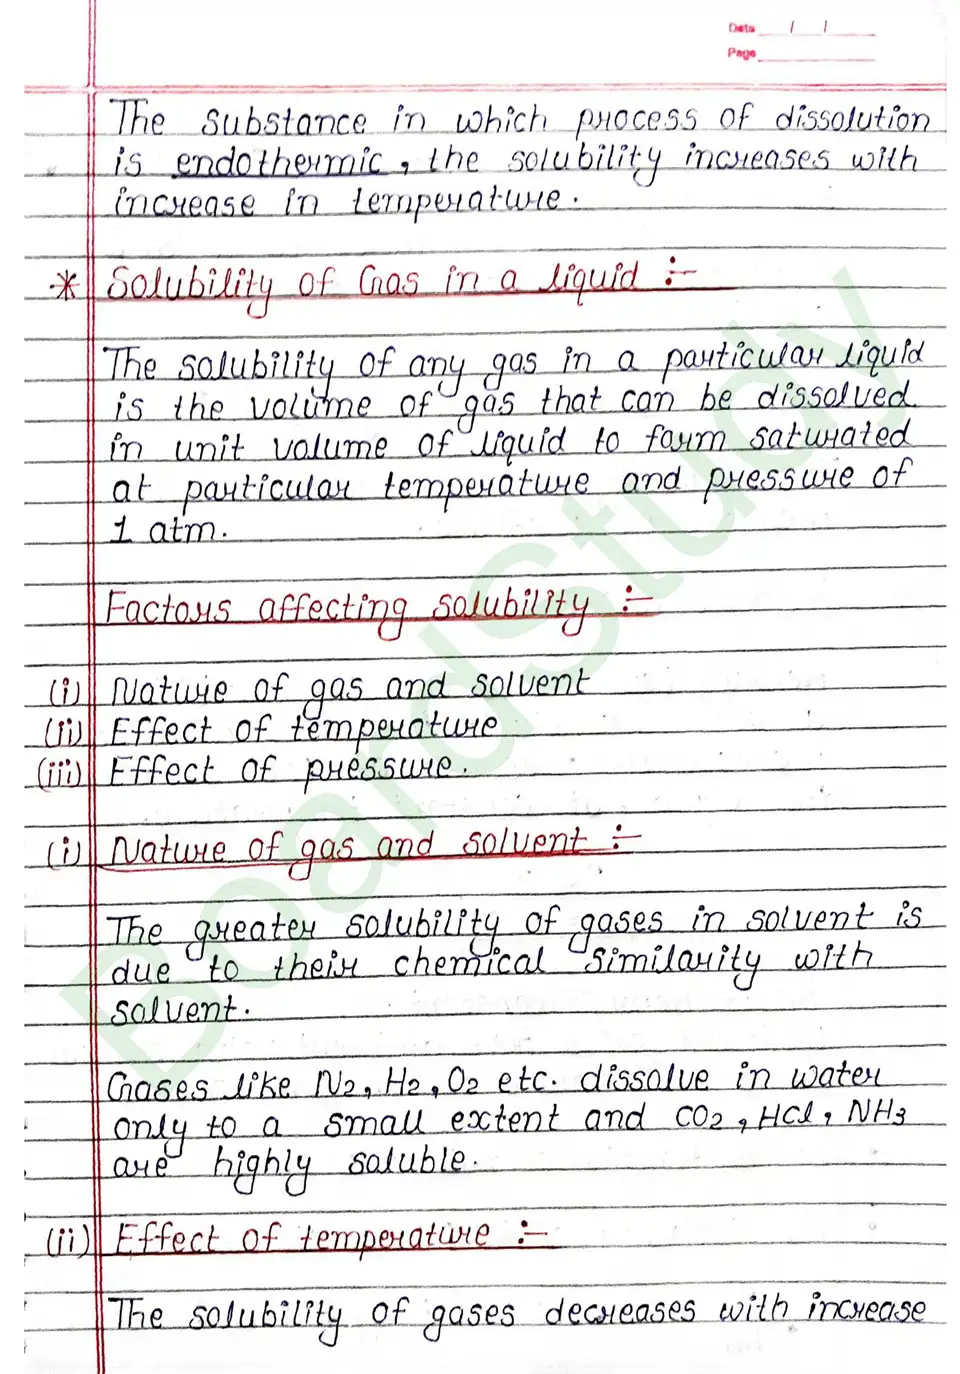 Date / /
Page
The substance in which process of dissolution
is endothermic, the solubility increases with
increase in temperature.
* Solubility of Gas in a liquid :-
The solubility of any gas in a particular liquid
is the volume of gas that can be dissolved.
in unit volume of liquid to form saturated
at particular temperature and pressure of
1 atm.
Factors affecting solubility :-
(i) Nature of gas and solvent
(ii) Effect of temperature
(iii) Effect of pressure.
(i) Nature of gas and solvent :-
The greater solubility of gases in solvent is
due to their chemical similarity with
solvent.
Gases like N2, H2, O2 etc. dissolve in water
only to a small extent and CO2, HCl, NH3
are highly soluble.
(ii) Effect of temperature :-
The solubility of gases decreases with increase
BoardStudy